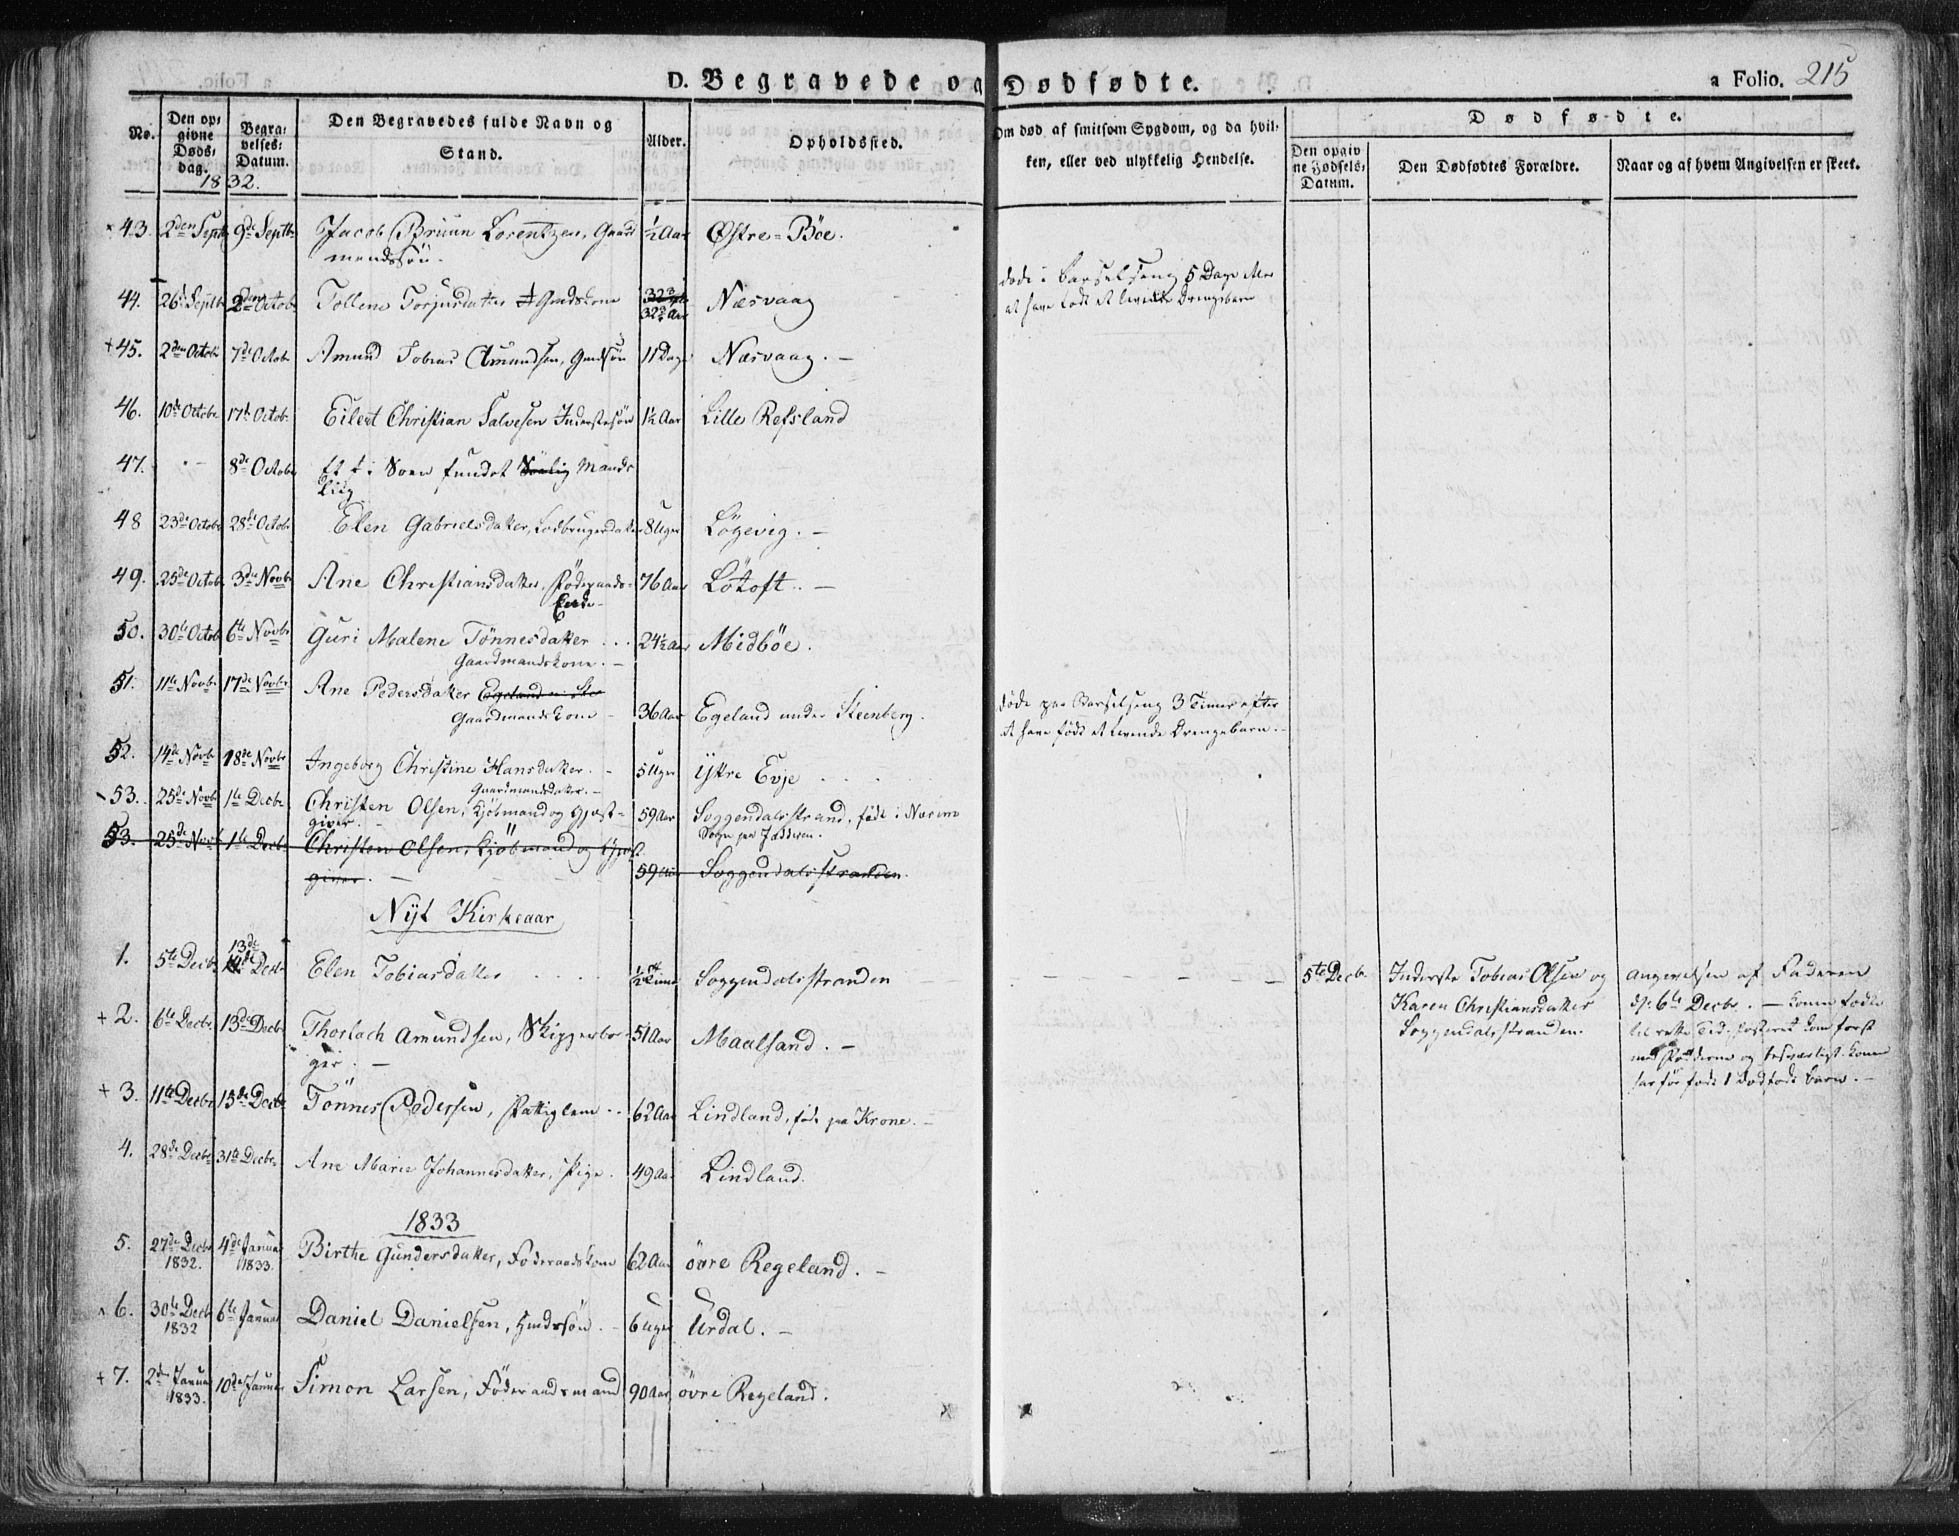 D. Begravede og Dødfødte.
a Folio. 215
No.
Den op-
givne
Døds-
dag.
Begra-
velses-
Datum.
Den Begravedes fulde Navn og
Stand.
Alder.
Opholdssted.
Om død af smitsom Sygdom, og da hvil-
ken, eller ved ulykkelig Hendelse.
Dødfødte.
Den opgiv-
ne Fødsels-
Datum.
Den Dødfødtes Forældre.
Naar og af hvem Angivelsen er skeet.
1832.
43. 2den Septb 9de Septbr Jacob Bruun Lorentzen, Gaard ½ Aar Østre-Bøe.
mandssön.
44. 26 Septb 2den Octob Tollene Torjusdatter Gmdskone 32 Aar Næsvaag døde i barselseng 5 Dage efter
at have född et levende Drengebarn
45. 2den Octob 7de Octob Amund Tobias Amundsen, Gmdsön 11 Dage Næsvaag. —
46. 10de Octobr 17de Octob. Eilert Christian Salvesen Inderstesøn 1½ Aar Lille Refsland
47. 8de Octobr Et i Søen fundet Mands
Liig
48 23de Octobr 28de Octobr Elen Gabrielsdatter, Lodbrugerdatter 8 Uger Lögevig. —
49. 25de Octob 3die Novbr Ane Christiansdatter, Födepaads- 76 Aar Lötoft. —
Enke
50. 30te Octob 6te Novbr Guri Malene Tönnesdatter 24½ Aar Midböe.
Gaardmandskone. —
51. 11te Novbr 17de Novbr Ane Pedersdatter
Gaardmandskone 36 Aar Egeland under Steenberg. døde paa Barselseng 3 Timer efter
at have født et levende Drengebarn.
52. 14de Novbr 18de Novbr Ingeborg Christine Hansdatter. 5 Uger Ystre Evje
Gaardmandsdatter. —
53. 25de Novbr 1te Decbr Christen Olsen, Kjöbmand og Gjæst- 59 Aar Soggendalsstrand, föd i Nærum
giver. Sogn paa Jæderen.
53. 25de Novb 1te Decbr Christen Olsen, Kjöbmand og Gjæst
giver. — 59 Aar Soggendalsstranden.
Nyt Kirkeaar
1. 5te Decbr 13de Decbr Elen Tobiasdatter ½ Time Soggendalsstranden 5te Decbr. Inderste Tobias Olsen og Angivelsen af Faderen
Karen Christiansdatter d: 6te Decbr. —
Soggendalsstranden. til rette Tid; fosteret kom först
med Födderne og besværligt. Konen
har för född 1 dödfödt barn. —
2. 6te Decbr 13de Decbr Thorlach Amundsen, Skipperbor- 51 Aar Maalsand. —
ger. —
3. 11te Decbr 15de Decbr Tönnes Pedersen, Fattiglem 62 Aar Lindland, född paa Krone. —
4. 28de Decbr 31te Decbr. Ane Marie Johannesdatter, Pige. 49 Aar Lindland.
1833
5. 27de Decbr 4de Januar Birthe Gundersdatter, Föderaadskone 62 Aar övre Regeland. —
1832. 1833.
6. 30te Decb 6te Januar Daniel Danielsen, Gmdssön. 6 Uger Urdal. —
1832
7. 2den Januar 10de Januar Simon Larsen, Föderaadsmand 90 Aar övre Regeland.
1833.